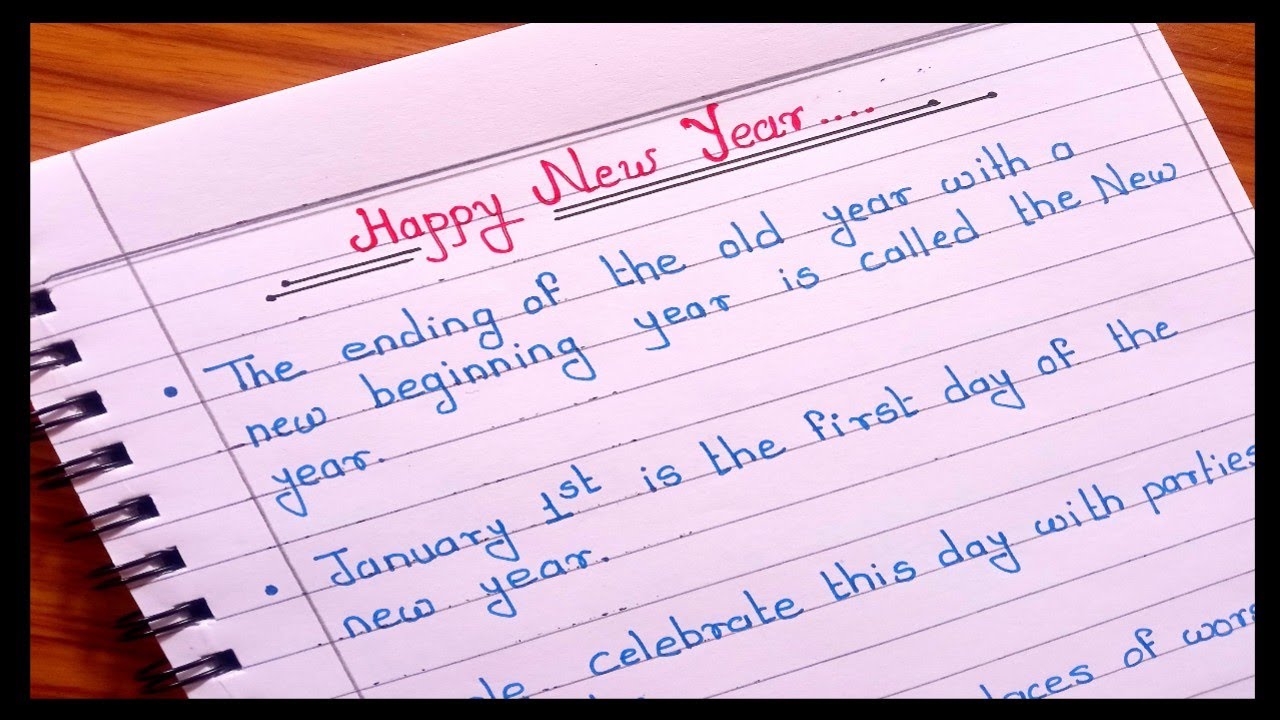 Happy New Year....
• The ending of the old year with a
new beginning year is called the New
year.
• January 1st is the first day of the
new year.
celebrate this day with parties
of